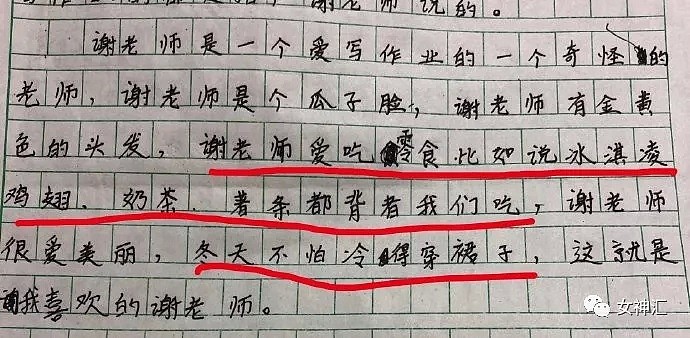 谢老师说的。
谢老师是一个爱写作业的一个奇怪的
老师，谢老师是个瓜子脸，谢老师有金黄
色的头发，谢老师爱吃零食比如说冰淇凌
鸡翅、奶茶、薯条都背着我们吃，谢老师
很爱美丽，冬天不怕冷得穿裙子，这就是
我喜欢的谢老师。
女神汇